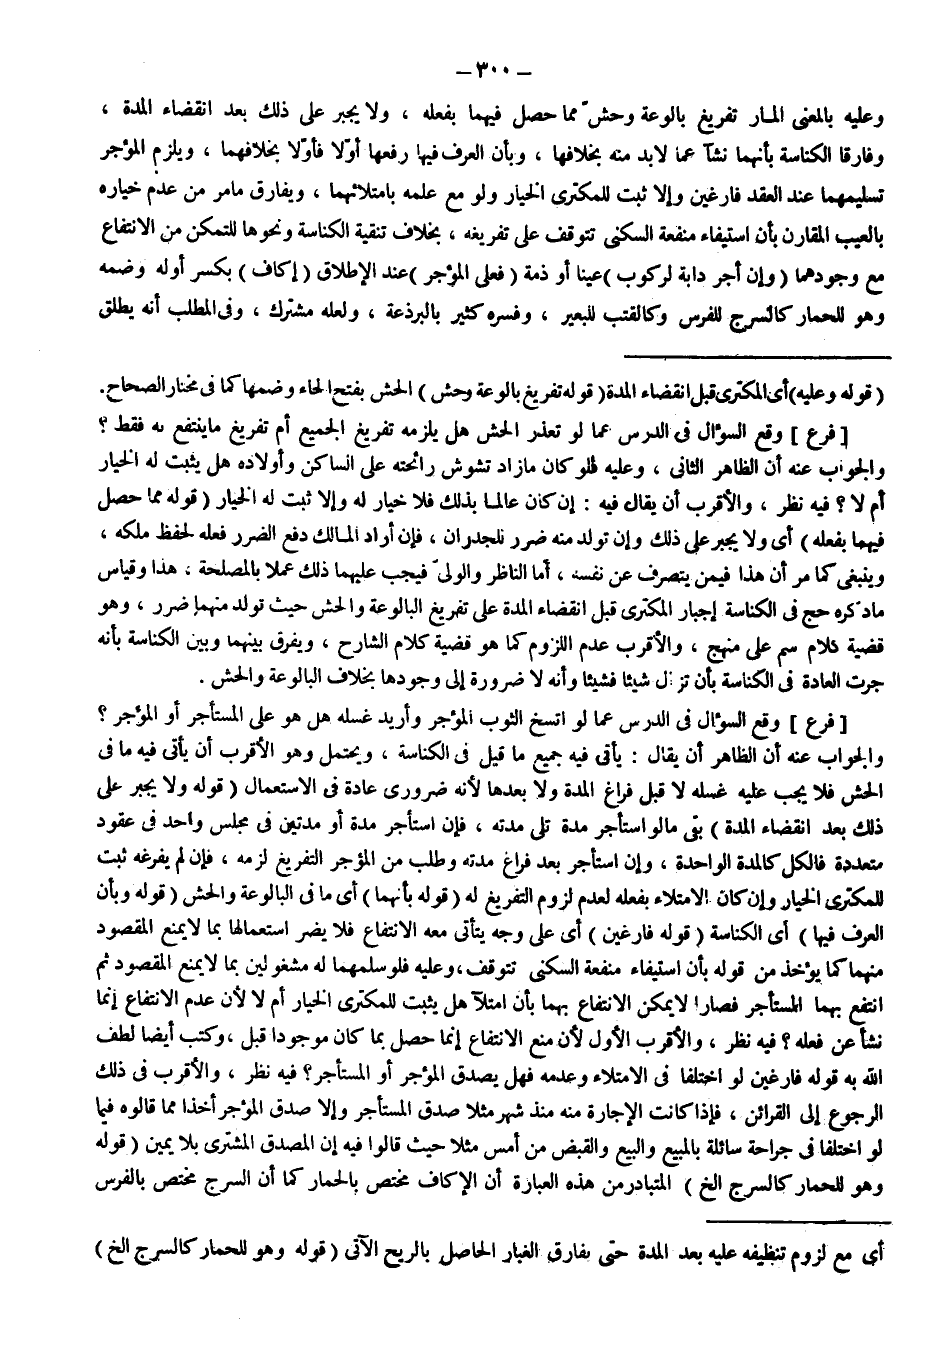 – ٣٠٠ –
وعليه بالمعنى المـار تفريغ بالوعة وحشّ مما حصل فيهما بفعله ، ولا يجبر على ذلك بعد انقضاء المدة ،
وفارقا الكناسة بأنهما نشآ عما لابد منه بخلافها ، وبأن العرف فيها رفعها أولا فأولا بخلافهما ، ويلزم المؤجر
تسليمهما عند العقد فارغين وإلا ثبت للمكترى الخيار ولو مع علمه بامتلائهما ، ويفارق مامر من عدم خياره
بالعيب المقارن بأن استيفاء منفعة السكنى تتوقف على تفريغه ، بخلاف تنقية الكناسة ونحوها للتمكن من الانتفاع
مع وجودهما ( وإن أجر دابة لركوب ) عينا أو ذمة ( فعلى المؤجر ) عند الإطلاق ( إكاف ) بكسر أوله وضمه
وهو للحمار كالسرج للفرس وكالقتب للبعير ، وفسره كثير بالبرذعة ، ولعله مشترك ، وفى المطلب أنه يطلق
( قوله وعليه ) أى المكترى قبل انقضاء المدة ( قوله تفريغ بالوعة وحش ) الحش بفتح الحاء وضمها كما فى مختار الصحاح .
[ فرع ] وقع السؤال فى الدرس عما لو تعذر الحش هل يلزمه تفريغ الجميع أم تفريغ ماينتفع به فقط ؟
والجواب عنه أن الظاهر الثانى ، وعليه فلو كان مازاد تشوش رائحته على الساكن وأولاده هل يثبت له الخيار
أم لا ؟ فيه نظر ، والأقرب أن يقال فيه : إن كان عالمـا بذلك فلا خيار له وإلا ثبت له الخيار ( قوله مما حصل
فيهما بفعله ) أى ولا يجبر على ذلك وإن تولد منه ضرر للجدران ، فإن أراد المـالك دفع الضرر فعله لحفظ ملكه ،
وينبغى كما مر أن هذا فيمن يتصرف عن نفسه ، أما الناظر والولىّ فيجب عليهما ذلك عملا بالمصلحة ، هذا وقياس
ماذكره حج فى الكناسة إجبار المكترى قبل انقضاء المدة على تفريغ البالوعة والحش حيث تولد منهما ضرر ، وهو
قضية كلام سم على منهج ، والأقرب عدم اللزوم كما هو قضية كلام الشارح ، ويفرق بينهما وبين الكناسة بأنه
جرت العادة فى الكناسة بأن تزال شيئا فشيئا وأنه لا ضرورة إلى وجودها بخلاف البالوعة والحش .
[ فرع ] وقع السؤال فى الدرس عما لو اتسخ الثوب المؤجر وأريد غسله هل هو على المستأجر أو المؤجر ؟
والجواب عنه أن الظاهر أن يقال : يأتى فيه جميع ما قيل فى الكناسة ، ويحتمل وهو الأقرب أن يأتى فيه ما فى
الحش فلا يجب عليه غسله لا قبل فراغ المدة ولا بعدها لأنه ضرورى عادة فى الاستعمال ( قوله ولا يجبر على
ذلك بعد انقضاء المدة ) بقى مالو استأجر مدة تلى مدته ، فإن استأجر مدة أو مدتين فى مجلس واحد فى عقود
متعددة فالكل كالمدة الواحدة ، وإن استأجر بعد فراغ مدته وطلب من المؤجر التفريغ لزمه ، فإن لم يفرغه ثبت
للمكترى الخيار وإن كان الامتلاء بفعله لعدم لزوم التفريغ له ( قوله بأنهما ) أى ما فى البالوعة والحش ( قوله وبأن
العرف فيها ) أى الكناسة ( قوله فارغين ) أى على وجه يتأتى معه الانتفاع فلا يضر استعمالها بما لايمنع المقصود
منهما كما يؤخذ من قوله بأن استيفاء منفعة السكنى تتوقف ، وعليه فلو سلمهما له مشغولين بما لايمنع المقصود ثم
انتفع بهما المستأجر فصارا لايمكن الانتفاع بهما بأن امتلآ هل يثبت للمكترى الخيار أم لا لأن عدم الانتفاع إنما
نشأ عن فعله ؟ فيه نظر ، والأقرب الأول لأن منع الانتفاع إنما حصل بما كان موجودا قبل ، وكتب أيضا لطف
الله به قوله فارغين لو اختلفا فى الامتلاء وعدمه فهل يصدق المؤجر أو المستأجر ؟ فيه نظر ، والأقرب فى ذلك
الرجوع إلى القرائن ، فإذا كانت الإجارة منه منذ شهر مثلا صدق المستأجر وإلا صدق المؤجر أخذا مما قالوه فيما
لو اختلفا فى جراحة سائلة بالمبيع والبيع والقبض من أمس مثلا حيث قالوا فيه إن المصدق المشترى بلا يمين ( قوله
وهو للحمار كالسرج الخ ) المتبادر من هذه العبارة أن الإكاف مختص بالحمار كما أن السرج مختص بالفرس
أى مع لزوم تنظيفه عليه بعد المدة حتى يفارق الغبار الحاصل بالريح الآتى ( قوله وهو للحمار كالسرج الخ )